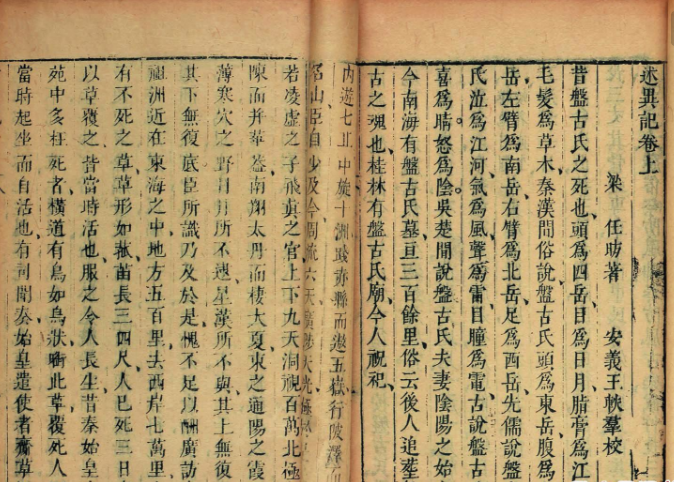 述異記卷上
梁 任昉著 安義王軼羣校
昔盤古氏之死也頭爲四岳目爲日月脂膏爲江
毛髮爲草木秦漢間俗說盤古氏頭爲東岳腹爲
岳左臂爲南岳右臂爲北岳足爲西岳先儒說盤
氏泣爲江河氣爲風聲爲雷目瞳爲電古說盤古
喜爲晴怒爲陰吳楚間說盤古氏夫妻陰陽之始
今南海有盤古氏墓亘三百餘里俗云後人追葬
古之魂也桂林有盤古氏廟今人祝祀
內遊七丘中旋十洲踐赤縣而遨五嶽行陂澤
名山臣自少及今周流六天廣陟天光極
若凌虛之子飛真之官上下九天洞視百萬北極
陳而并華葢南翔太丹而棲大夏東之通陽之霞
薄寒穴之野日月所不逮星漢所不與其上無復
其下無復底臣所識乃及於是愧不足以酬廣訪
祖洲近在東海之中地方五百里去西岸七萬里
有不死之草草形如菰苗長三四尺人已死三日
以草覆之皆當時活也服之令人長生昔秦始皇
苑中多枉死者橫道有鳥如烏狀啣此草覆死人
當時起坐而自活也有司聞奏始皇遣使者齎草